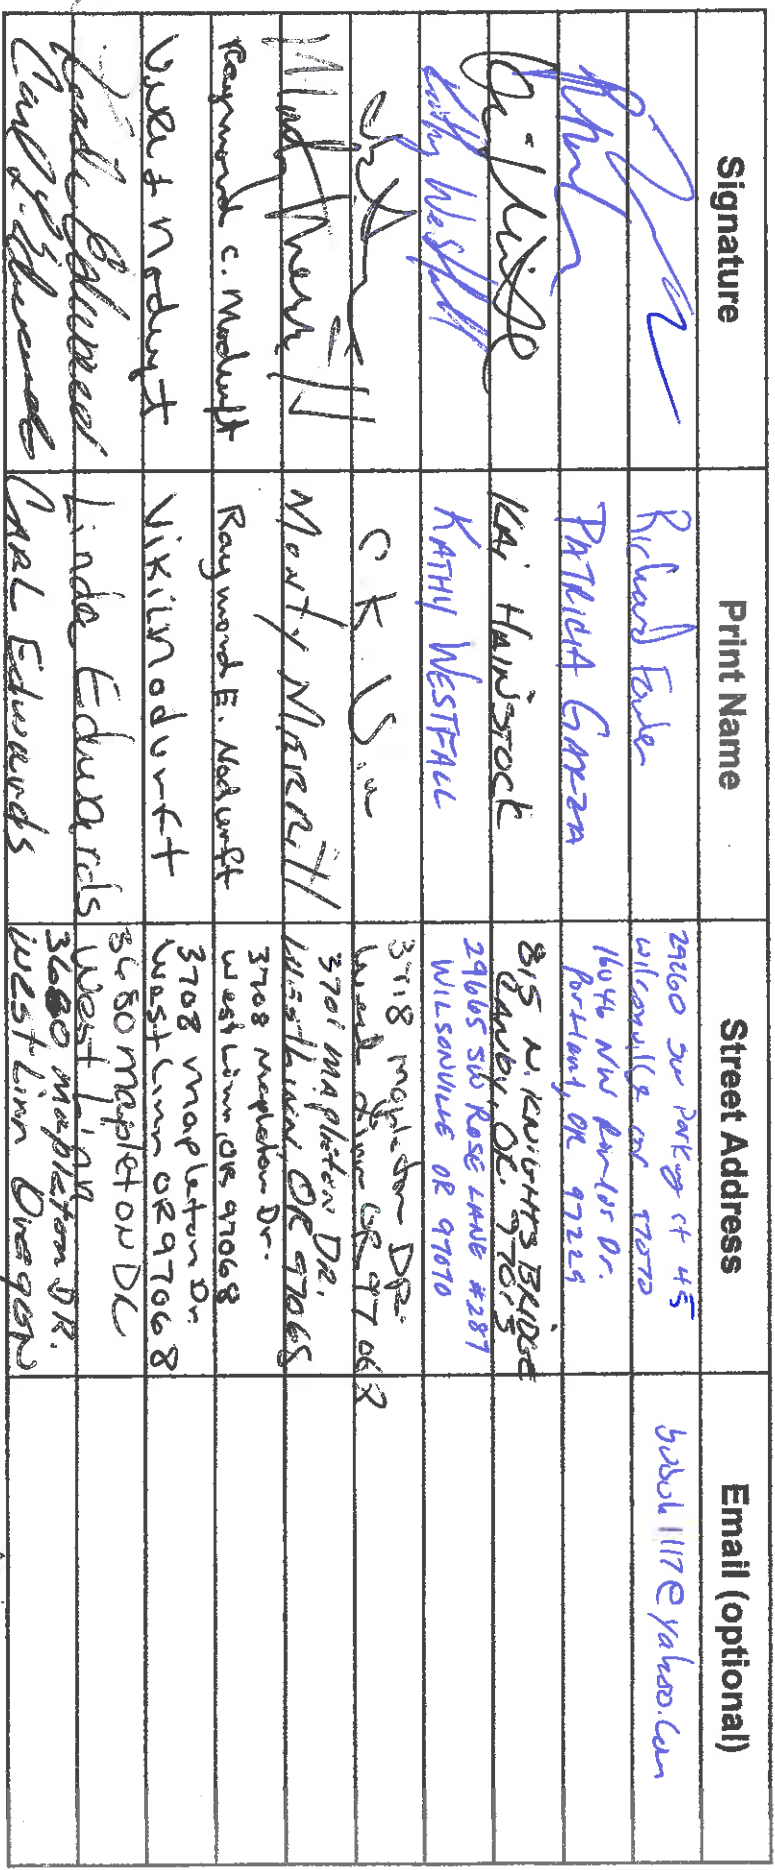 Signature Print Name Street Address Email (optional)
Richard 29260 SW Parkway ct 45
Wilsonville OR 97070
PATRICIA GARZA 16046 NW Dr.
Portland, OR 97229
KAI HAINSTOCK 815 N. KNIGHTS BRIDGE
CANBY, OR. 97013
Kathy Westfall KATHY WESTFALL 29665 SW ROSE LANE #287
WILSONVILLE OR 97070
CK 3718 mapleton DR
West Linn OR 97068
MONTY MERRITT 3701 MAPLETON DR.
WEST LINN OR 97068
Raymond E. Nodurft 3708 Mapleton Dr.
West Linn, OR 97068
Viki Nodurft 3708 Mapleton Dr.
West Linn OR 97068
Linda Edwards Linda Edwards 3680 mapleton DR
West Linn
Carl L. Edwards CARL Edwards 3680 mapleton DR.
West Linn Oregon